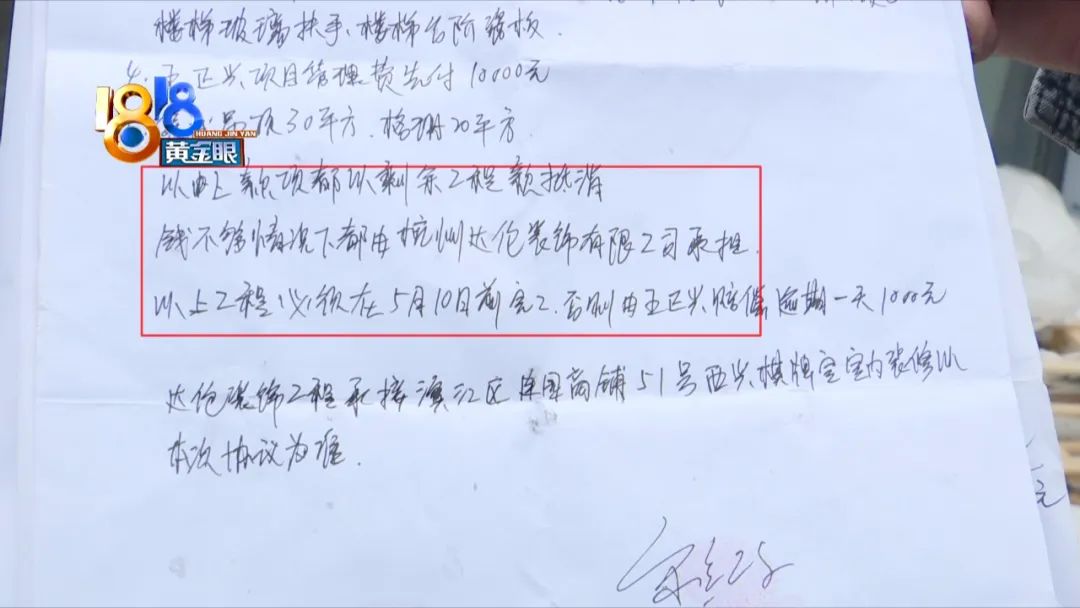 楼梯玻璃扶手、楼梯台阶踏板.
4. 王正兴项目管理费先付10000元
吊顶30平方. 格栅20平方.
1818
HUANG JIN YAN
黄金眼
以上款项都以剩余工程款抵消
钱不够情况下都由杭州达伦装饰有限公司承担.
以上工程必须在5月10日前完工. 否则由王正兴赔偿逾期一天1000元
达伦装饰工程承接滨江区 商铺51号西兴棋牌室室内装修以
本次协议为准.
元